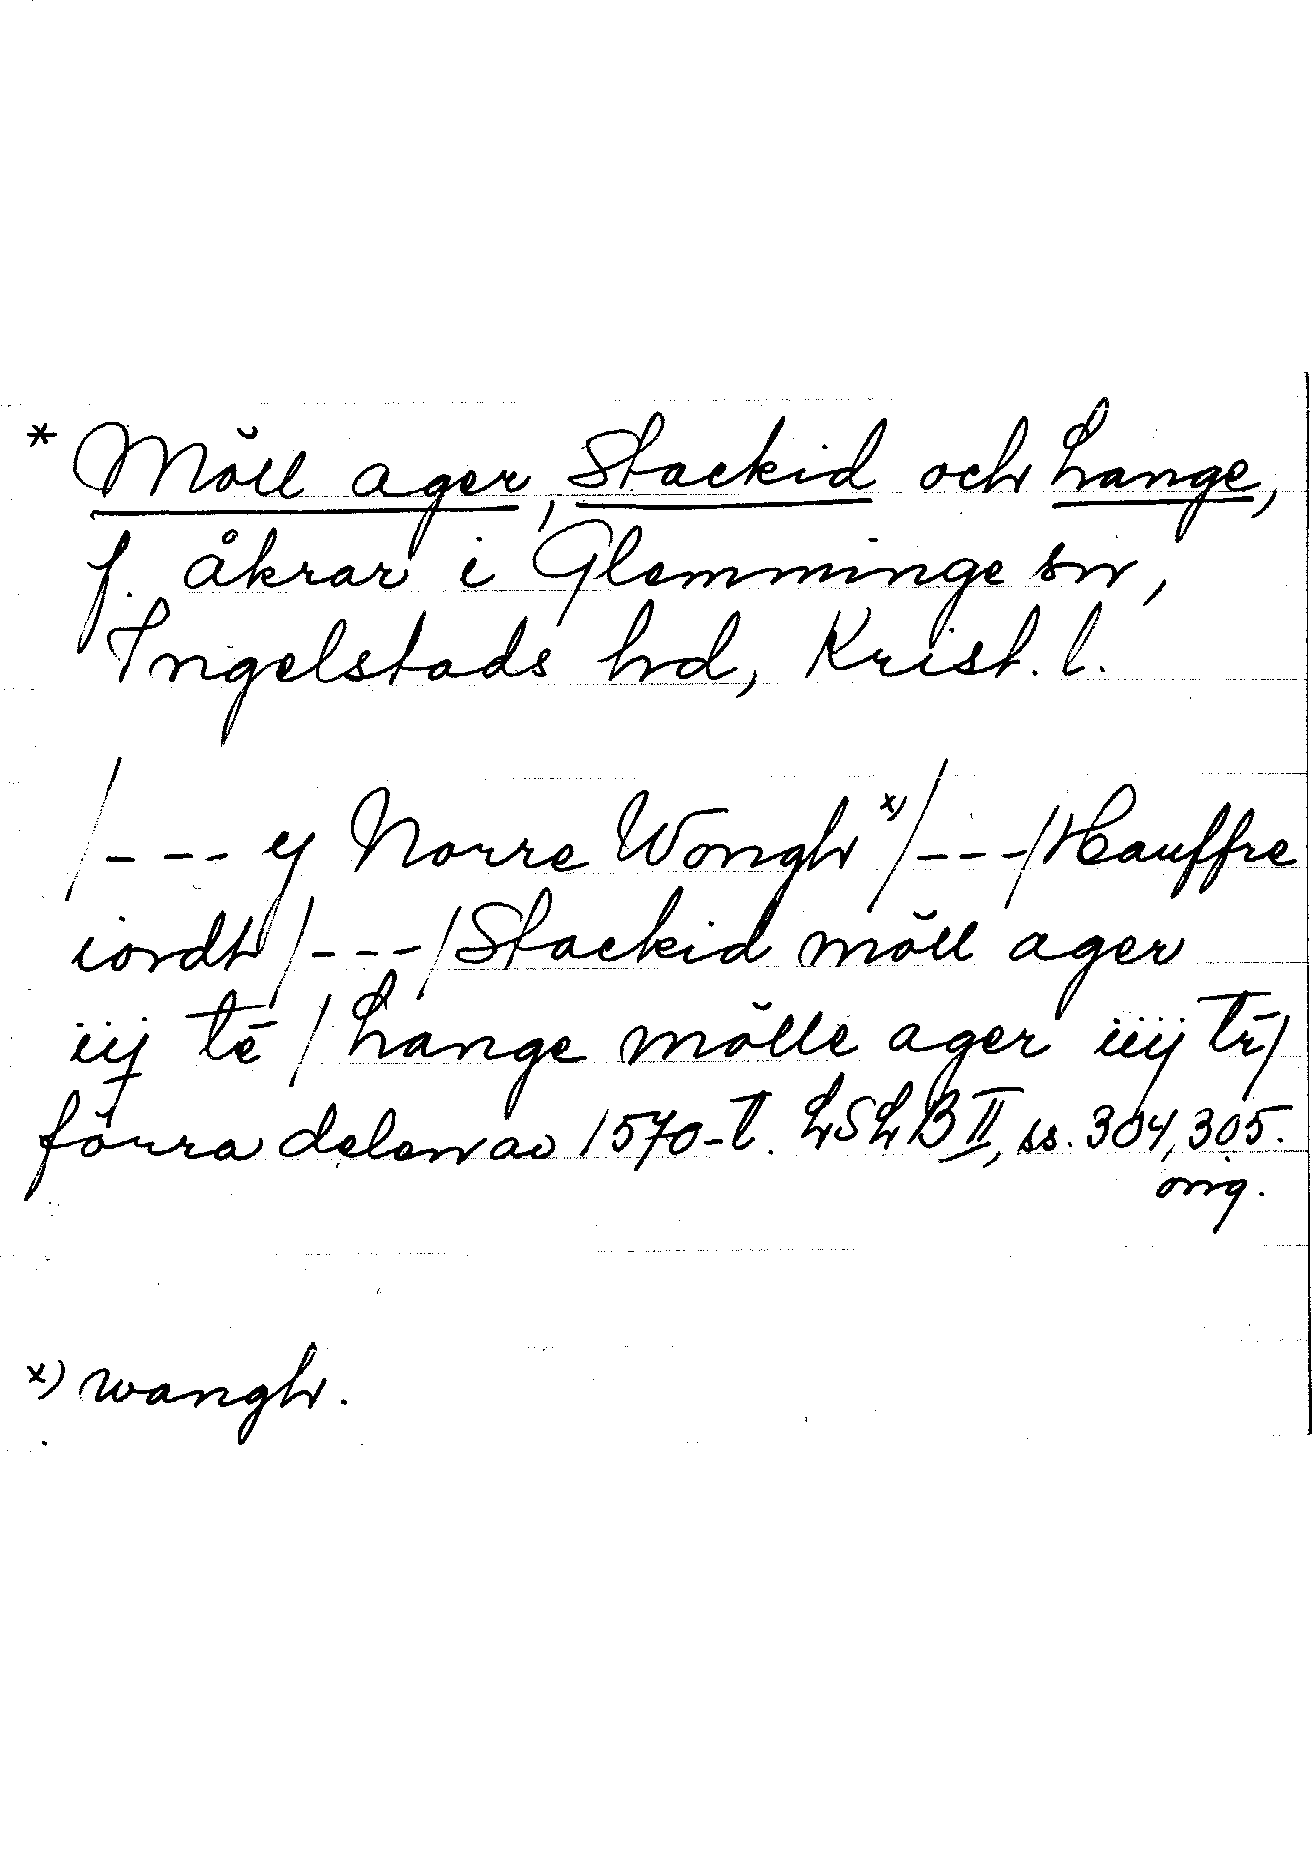 * Möll ager, Stackid och Lange,
f. åkrar i Glemminge sn,
Ingelstads hd, Krist. l.
/--- y Norre Wongh x)/---/Hauffre
iordh/---/Stackid möll ager
iij tē / Lange mölle ager iiij tr̄/
förra delen av 1570-t. LSLB II, ss. 304, 305.
orig.
x) wangh.